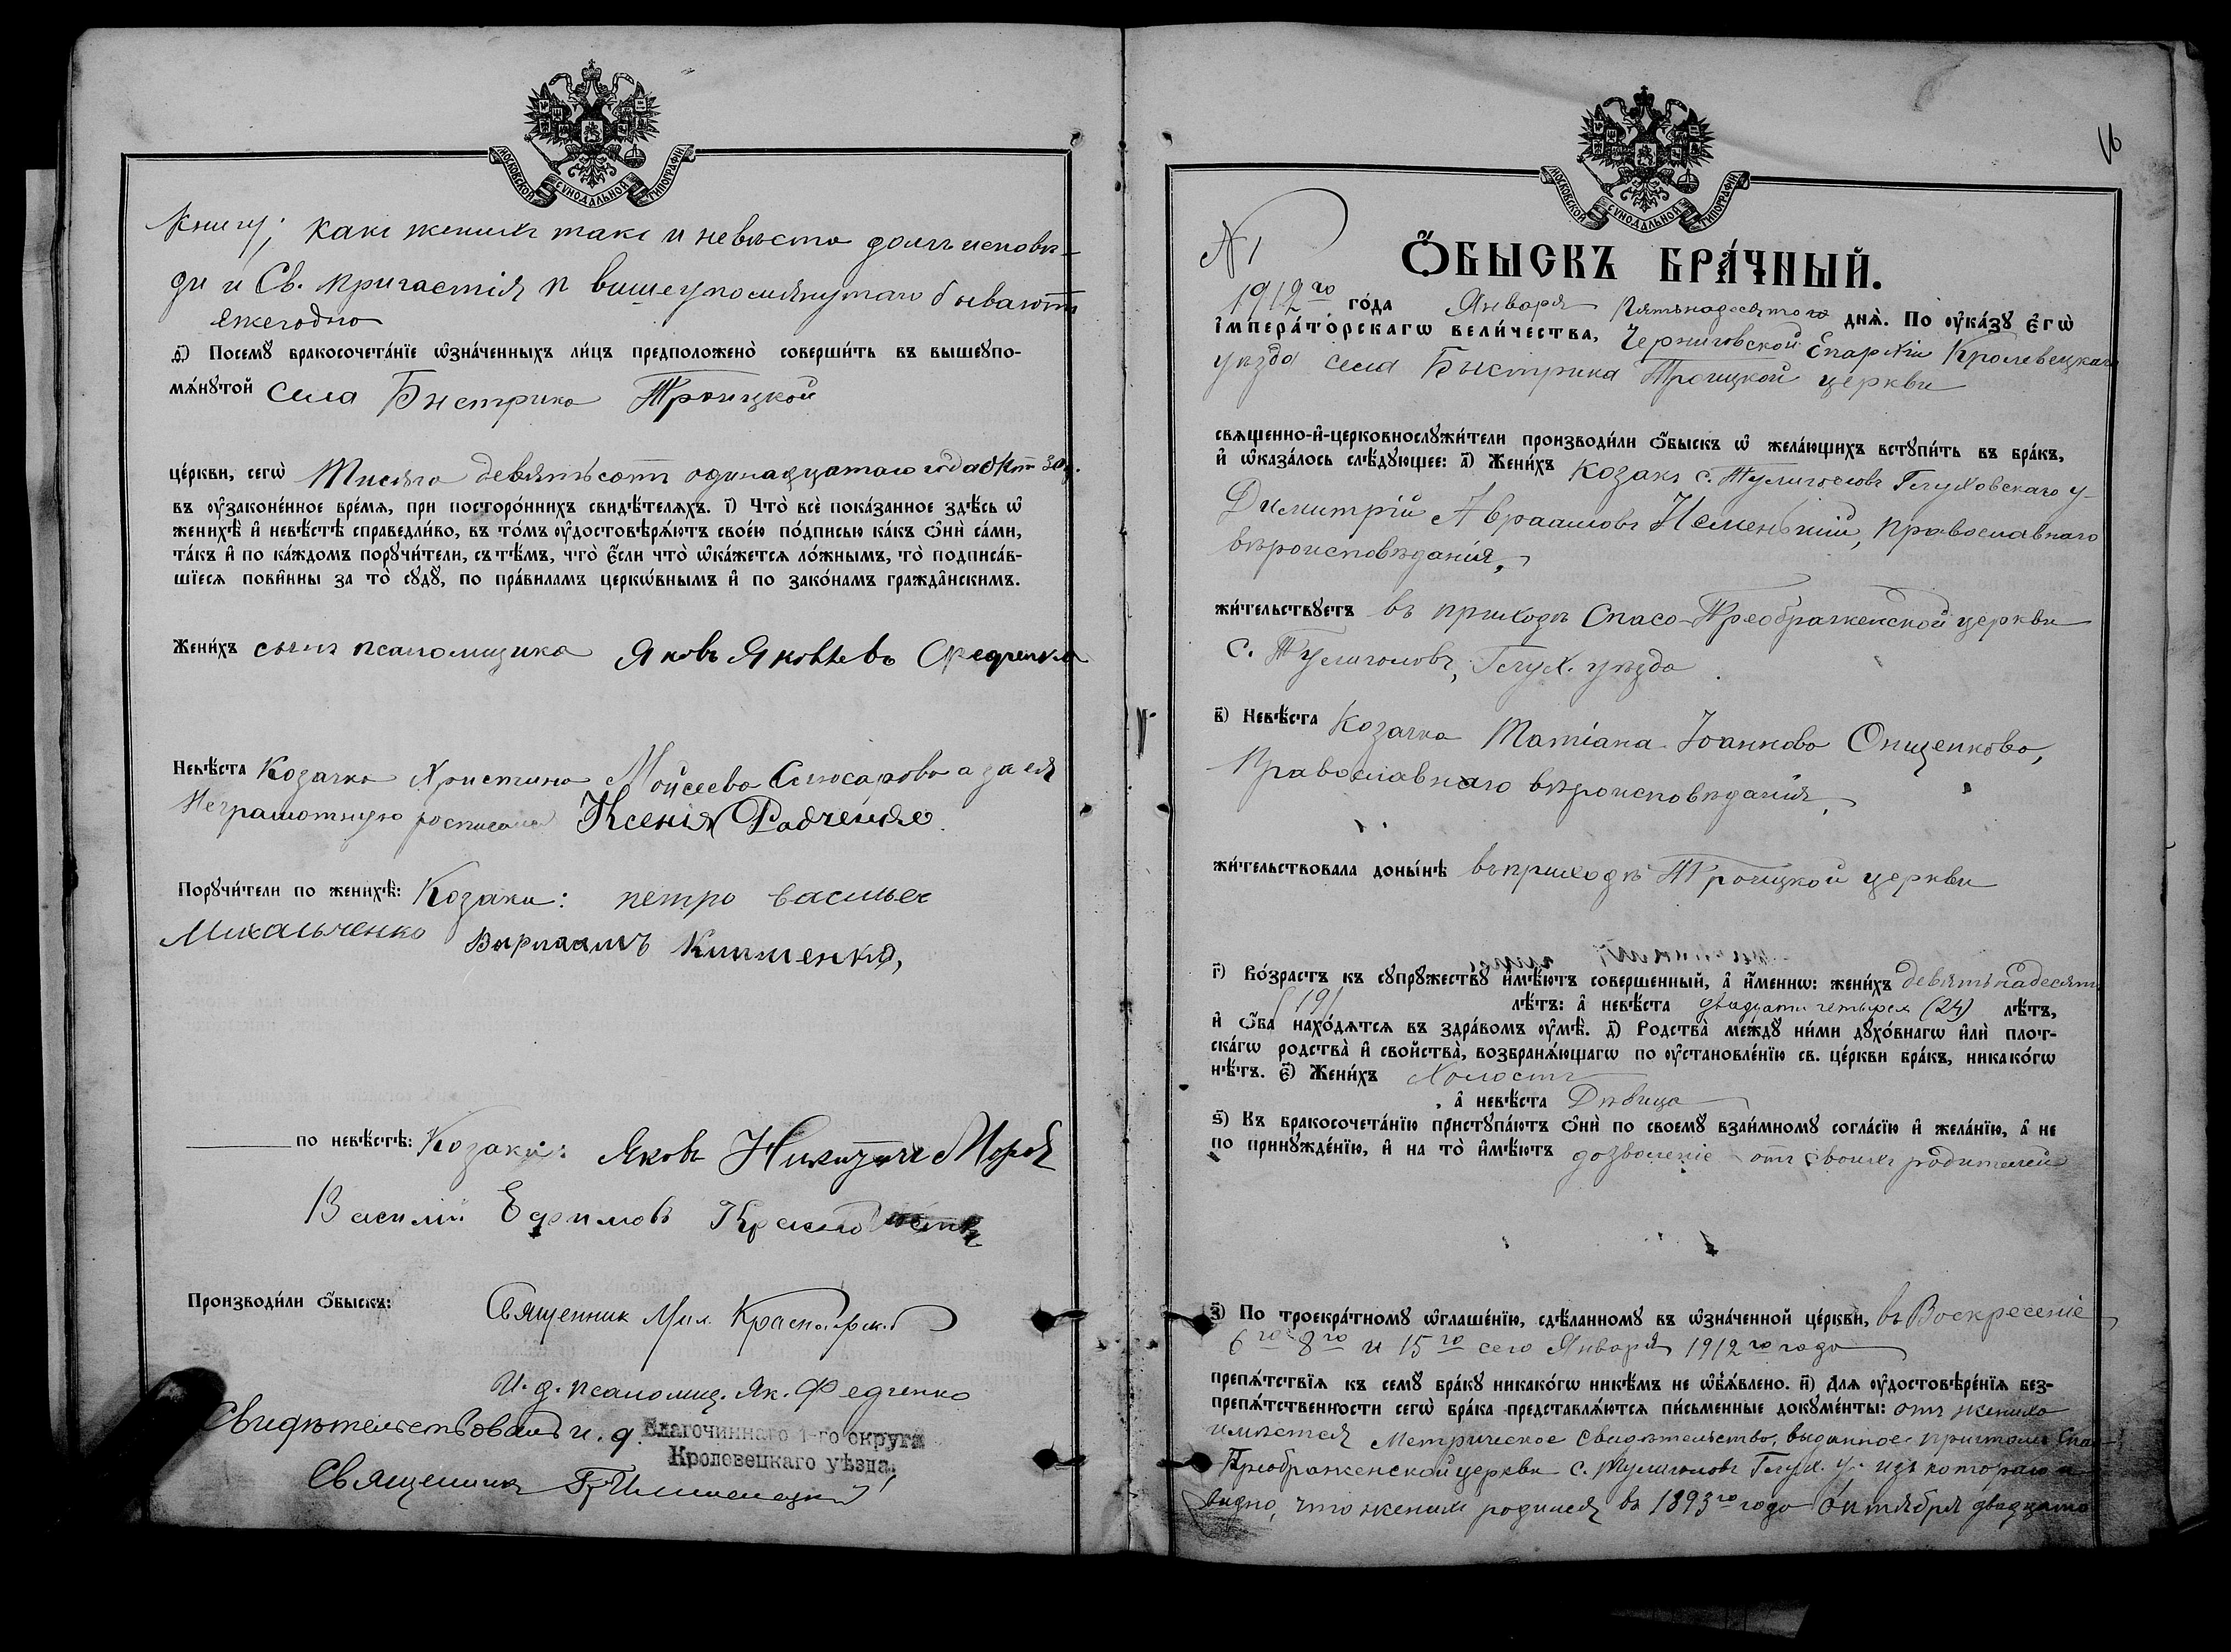 МОСКОВСКОЙ СѴНОДАЛЬНОЙ ТИПОГРАФІИ
Книгу; какъ женихъ такъ и невѣста долгъ исповѣ-
ди и Св. Причастія п вышеупомянутаго бываютъ
ежегодно
Посемꙋ бракосочета́нїе ѡ҆зна́ченныхъ ли́цъ предположено̀ соверши́ть въ вышеꙋпо-
мѧ́нꙋтой села Быстрика Троицкой
це́ркви, сегѡ̀ Тысяча девятьсотъ одинадцатаго года Окт 30 д.
въ ᲂу҆зако́ненное вре́мѧ, при посторо́ннихъ свидѣ́телѧхъ. і҃) Что̀ всѐ пока́занное здѣ́сь ѡ҆
женихѣ̀ и҆ невѣ́стѣ справедли́во, въ то́мъ ᲂу҆достовѣрѧ́ютъ свое́ю по́дписью ка́къ ѻ҆нѝ са́ми,
та́къ и҆ по ка́ждомъ порꙋчи́тели, съ тѣ́мъ, что̀ є҆́сли что̀ ѡ҆ка́жетсѧ ло́жнымъ, то̀ подписа́в-
шїесѧ пови́нны за то̀ сꙋдꙋ̀, по пра́виламъ церко́внымъ и҆ по зако́намъ гражда́нскимъ.
Жени́хъ сынъ псаломщика Яковъ Яковлевъ Федченко
Невѣ́ста Козачка Христина Мойсеева Слюсарова а за ея
Неграмотную росписалась Ксенія Радченко
Порꙋчи́тели по женихѣ̀: Козаки: петро васильев
Михальченко Варлаамъ Клименко,
по невѣ́стѣ: Козаки: Яковъ Никитичъ Мороз
Василий Ефимовъ
Производи́ли ѻ҆́быскъ: Священник Мих.
И. д. псаломщ. Як. Федченко
Свидѣтельствовалъ и. д. Благочиннаго 1-го округа
Кролевецкаго уѣзда.
Священникъ
16
МОСКОВСКОЙ СѴНОДАЛЬНОЙ ТИПОГРАФІИ
№ 1
Ѻ҆́БЫСКЪ БРА́ЧНЫЙ.
1912го го́да Января Пятьнадесятого днѧ̀. По ᲂу҆ка́зꙋ є҆гѡ̀
і҆мпера́торскагѡ вели́чества, Черниговской Епархіи Кролевецкаго
уѣзда села Быстрика Троицкой церкви
свѧще́нно-и҆-церковнослꙋжи́тели производи́ли ѻ҆́быскъ ѡ҆ жела́ющихъ встꙋпи́ть въ бра́къ,
и҆ ѡ҆каза́лось слѣ́дꙋющее: а҃) Жени́хъ Козакъ с. Тулиголовъ Глуховскаго у-
Димитрій Авраамовъ Немень­кій, православнаго
вѣроисповѣданія,
жи́тельствꙋетъ въ приходѣ Спасо-Преображенской церкви
с. Тулиголовъ, Глух. уѣзда
в҃) Невѣ́ста Козачка Татіана Іоаннова Онищенкова,
Православнаго вѣроисповѣданія,
жи́тельствовала доны́нѣ въ приходѣ Троицкой церкви
г҃) Во́зрастъ къ сꙋпрꙋ́жествꙋ и҆мѣ́ютъ соверше́нный, а҆ и҆́меннѡ: жени́хъ девятьнадесят
(19) лѣ́тъ: а҆ невѣ́ста двадцати четырех (24) лѣ́тъ,
и҆ ѻ҆́ба нахо́дѧтсѧ въ здра́вомъ ᲂу҆мѣ̀. д҃) Родства̀ междꙋ̀ ни́ми дꙋхо́внагѡ и҆лѝ плот-
ска́гѡ родства̀ и҆ свойства̀, возбранѧ́ющагѡ по ᲂу҆становле́нїю св. це́ркви бра́къ, никако́гѡ
нѣ́тъ. є҃) Жени́хъ Холостъ
а҆ невѣ́ста Дѣвица
ѕ҃) Къ бракосочета́нїю пристꙋпа́ютъ ѻ҆нѝ по своемꙋ̀ взаи́мномꙋ согла́сїю и҆ жела́нїю, а҆ не
по принꙋжде́нїю, и҆ на то̀ и҆мѣ́ютъ дозволеніе отъ своихъ родителей
з҃) По троекра́тномꙋ ѡ҆глаше́нїю, сдѣ́ланномꙋ въ ѡ҆зна́ченной це́ркви, въ Воскресеніе
6го 8го и 15го сего Января 1912го года
препѧ́тствїѧ къ семꙋ̀ бра́кꙋ никако́гѡ никѣ́мъ не ѡ҆б̾ѧ́влено. и҃) Длѧ ᲂу҆достовѣре́нїѧ без-
препѧ́тственности сегѡ̀ бра́ка представлѧ́ютсѧ пи́сьменные докꙋме́нты: отъ жениха
имѣется Метрическое свидѣтельство, выданное причтомъ Спас-
Преображенской церкви с. Тулиголовъ Глух. у. изъ котораго
видно, что женихъ родился въ 1893го года Октября двадцато